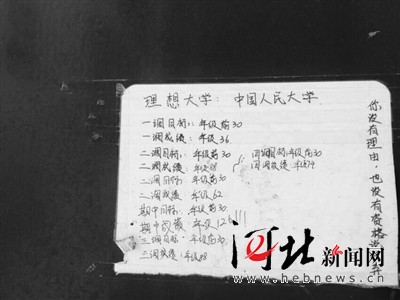 理想大学：中国人民大学
一调目标：年级前30
一调成绩：年级36
二调目标：年级前30
二调成绩：年级
二调目标：年级前30
二调成绩 年级62
期中目标：年级前30
期中成绩 年级12
三调目标：年级前30
三调成绩：年级88
四调目标年级前30
四调成绩 年级19
你没有理由，也没有资格
河北新闻网
www.hebnews.cn